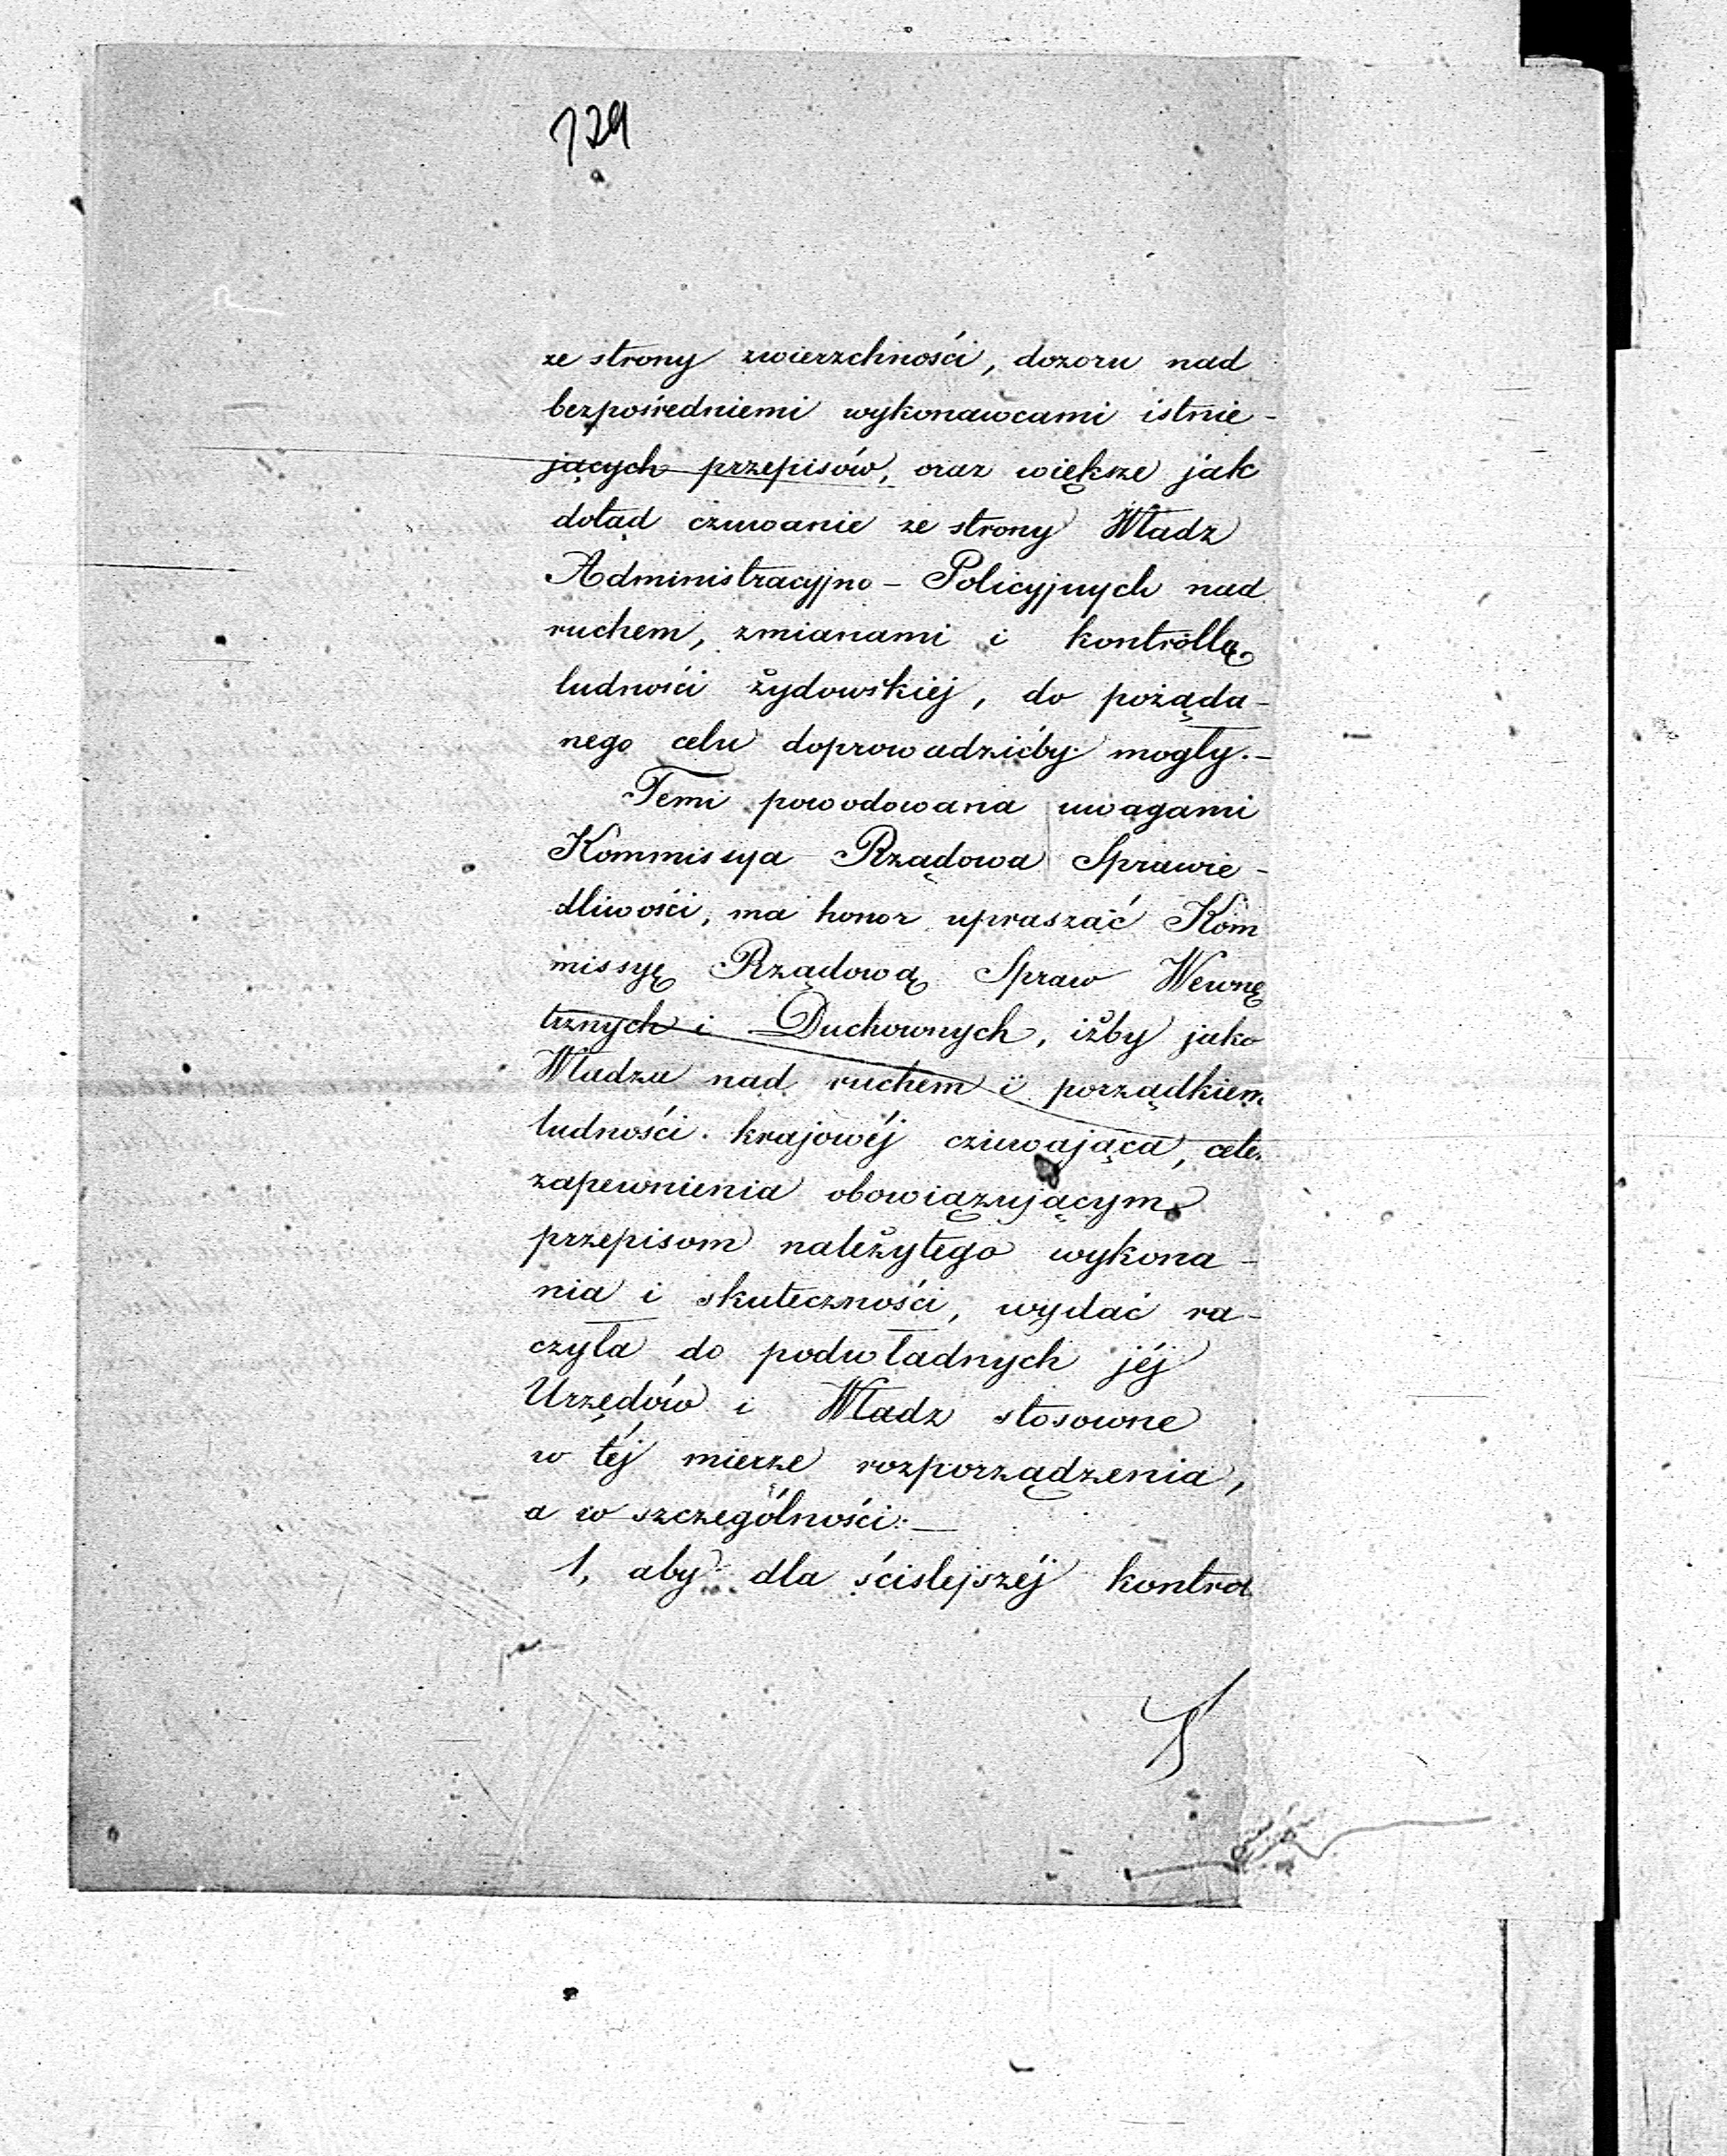 129
ze strony zwierzchności, dozoru nad
bezpośredniemi wykonawcami istnie-
jących przepisów, oraz większe jak
dotąd czuwanie ze strony Władz
Administracyjno-Policyjnych nad
ruchem, zmianami i kontrollą
ludności żydowskiéj, do pożąda-
nego celu doprowadzićby mogły.-
Temi powodowana uwagami
Kommissya Rządowa Sprawie-
dliwości, ma honor upraszać Kom
missyę Rządową Spraw Wewnę
trznych i Duchownych, iżby jako
Władza nad ruchem i porządkiem
ludności krajowéj czuwająca, cele
zapewnienia obowiązującym
przepisom należytego wykona-
nia i skuteczności, wydać ra-
czyła do podwładnych jéj
Urzędów i Władz stosowne
w téj mierze rozporządzenia,
a w szczególności:—
1, aby dla ściślejszéj kontrol